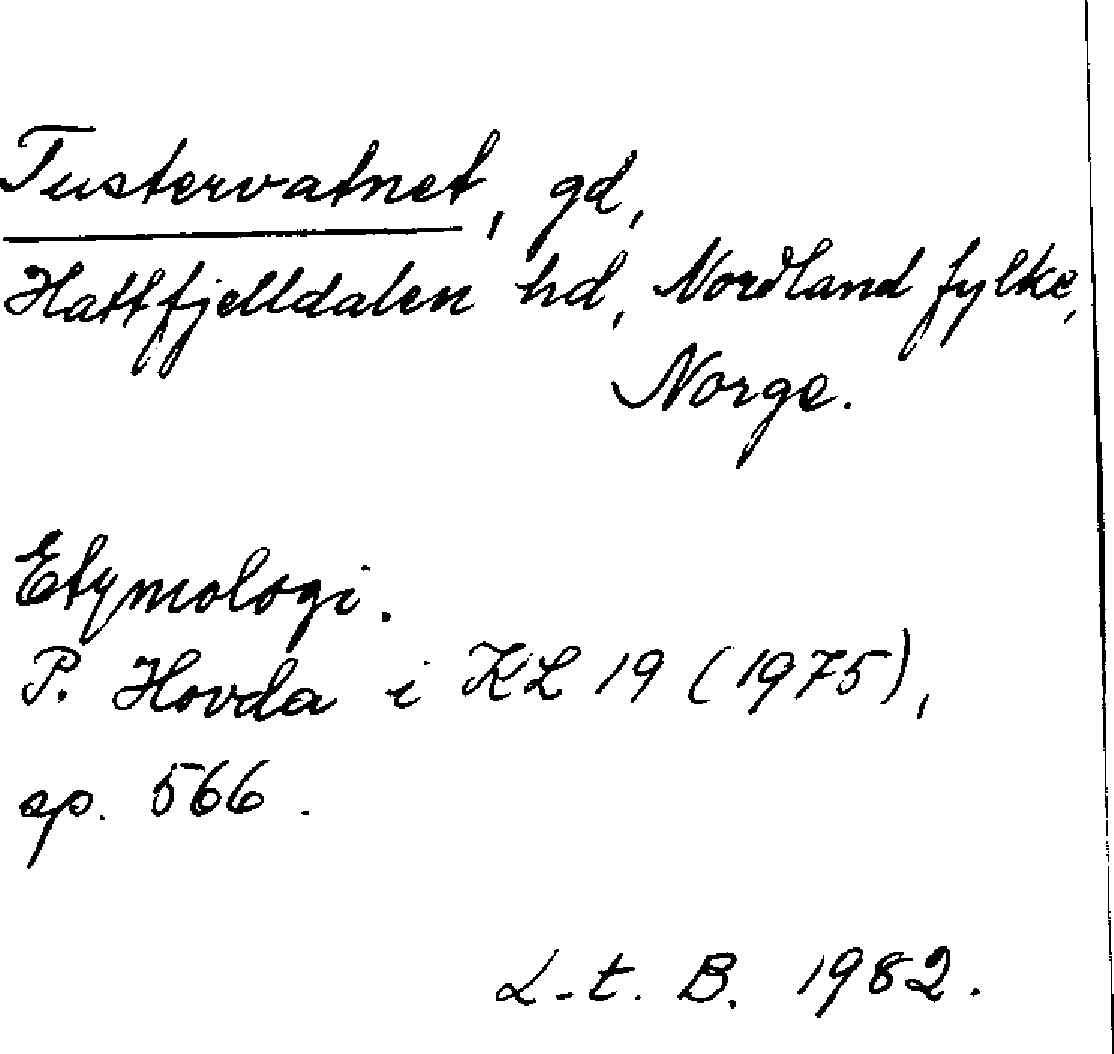 Tustervatnet, gd,
Hattfjelldalen hd, Nordland fylke,
Norge.
Etymologi.
P. Hovda i KL 19 (1975),
sp. 566.
L-t. B. 1982.